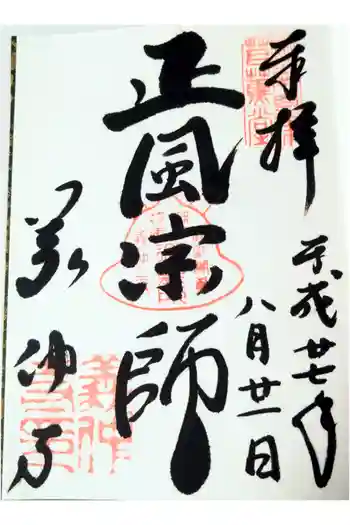 奉拝
平成廿七年
八月廿一日
正風宗師
義仲寺
義仲